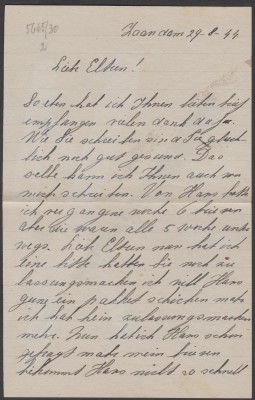 5665/30
2
Zaandam 29-8-44
Liebe Eltern!
Soeben hat ich Ihnen lieben brief
empfangen vielen dank dafür.
Wie Sie schreiben sind Sie gluck-
lich noch gut gesund. Das
selbe kann ich Ihnen auch von
mich schreiben. Von Hans hatte
ich vergangene woche 6 briefen
aber die waren alle 5 woche unter
wegs. Liebe Eltern nun hat ich
eine bitte hatten Sie noch zu
lassungsmarken ich will Hans
gern ein paket schicken
ich hat kein zulassungsmarken
mehr. Nun hat ich Hans schon
gefragt mein briefen
bekommt Hans nicht so schnell